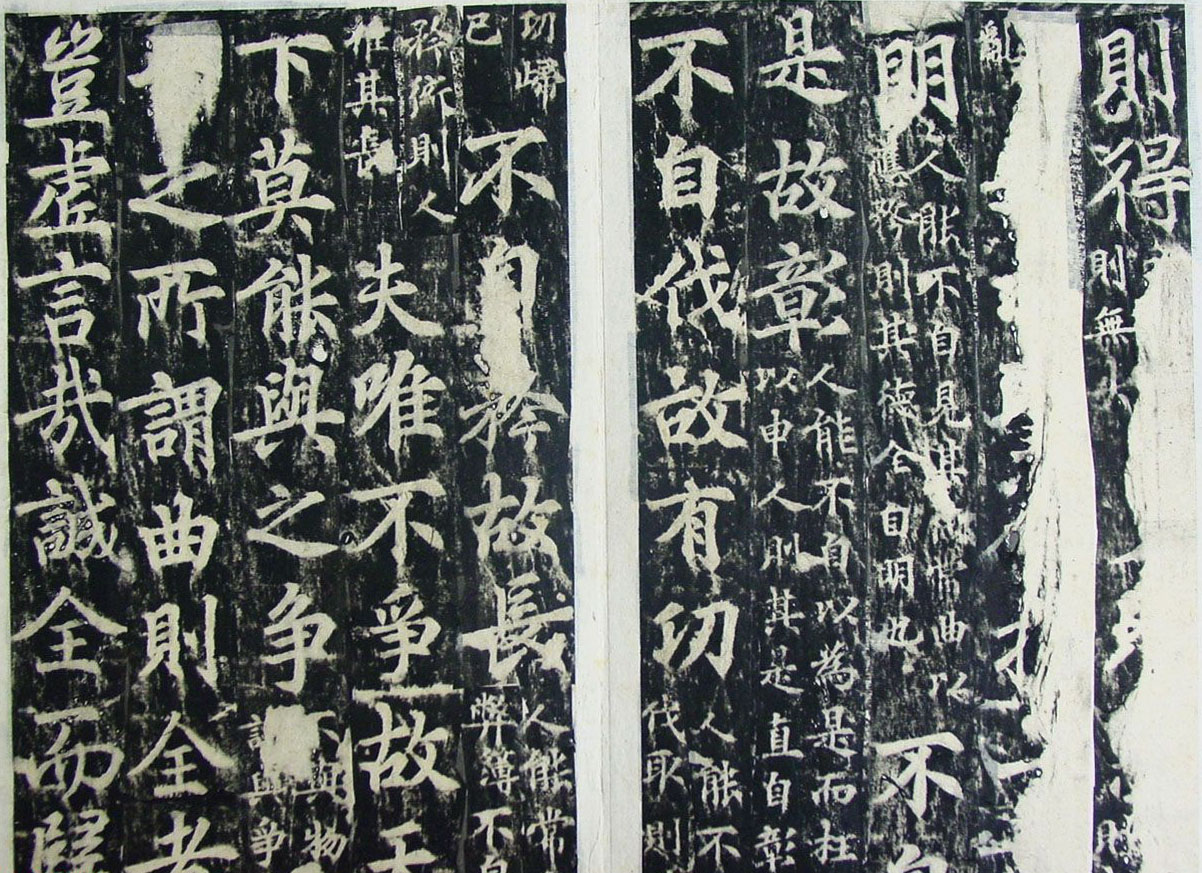 則得
則無
則
亂
明
人能不自見其
常曲以
矜則其德合自明也
不自
是故章
人能不自以為是而枉
以申人則其是直自彰
不自伐故有功
人能不
伐取則
功歸
己
不自矜故長
人能常
弊薄不自
矜衒則人
推其長
夫唯不爭故天
下莫能與之爭
不與物
與爭
之所謂曲則全者
豈虛言哉誠全而歸